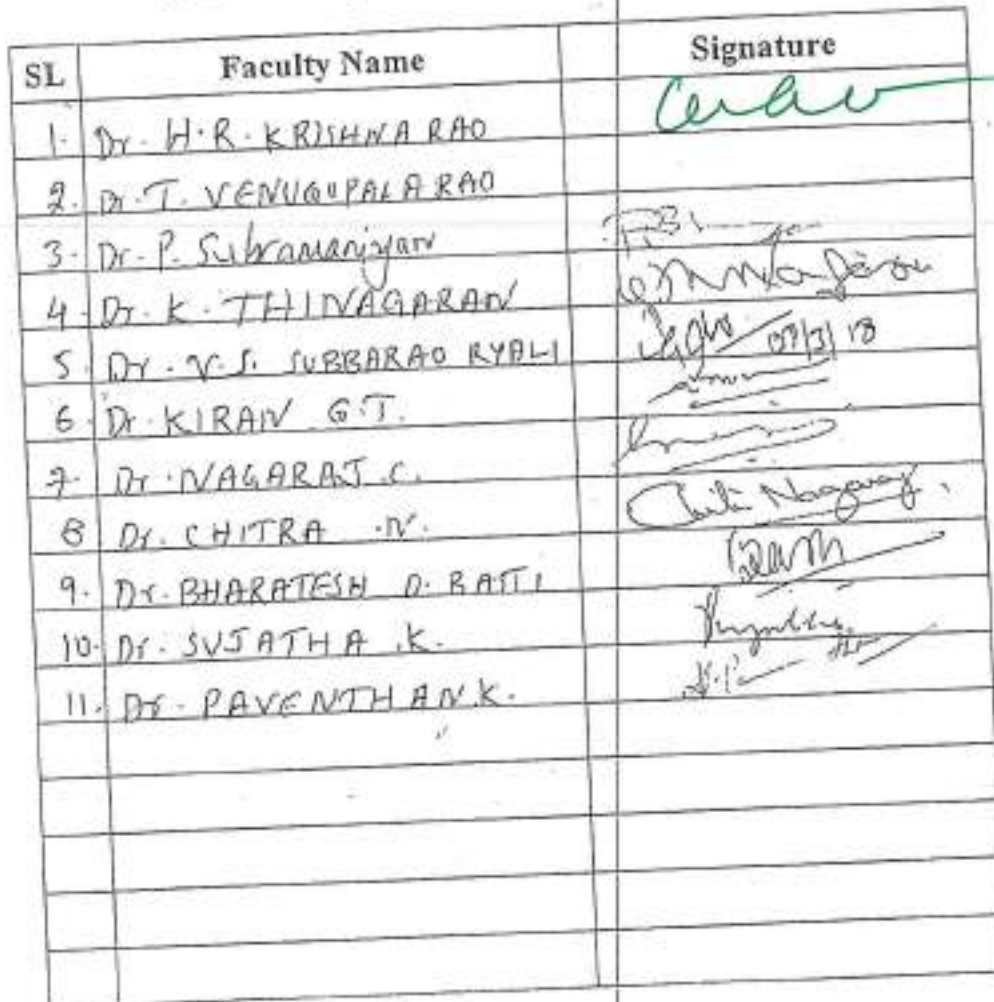 SL Faculty Name Signature
1. Dr. H.R. KRISHNA RAO
2. Dr. T. VENUGOPALA RAO
3. Dr. P. Subramaniyan
4. Dr. K. THINAGARAN
5. Dr. V.S. SUBBARAO RYALI 09/3/18
6. Dr. KIRAN G.T.
7. Dr. NAGARAJ .C.
8 Dr. CHITRA .N. Chitra Nagaraj
9. Dr. BHARATESH D. BATTI
10. Dr. SUJATHA .K.
11. Dr. PAVENTHAN.K.